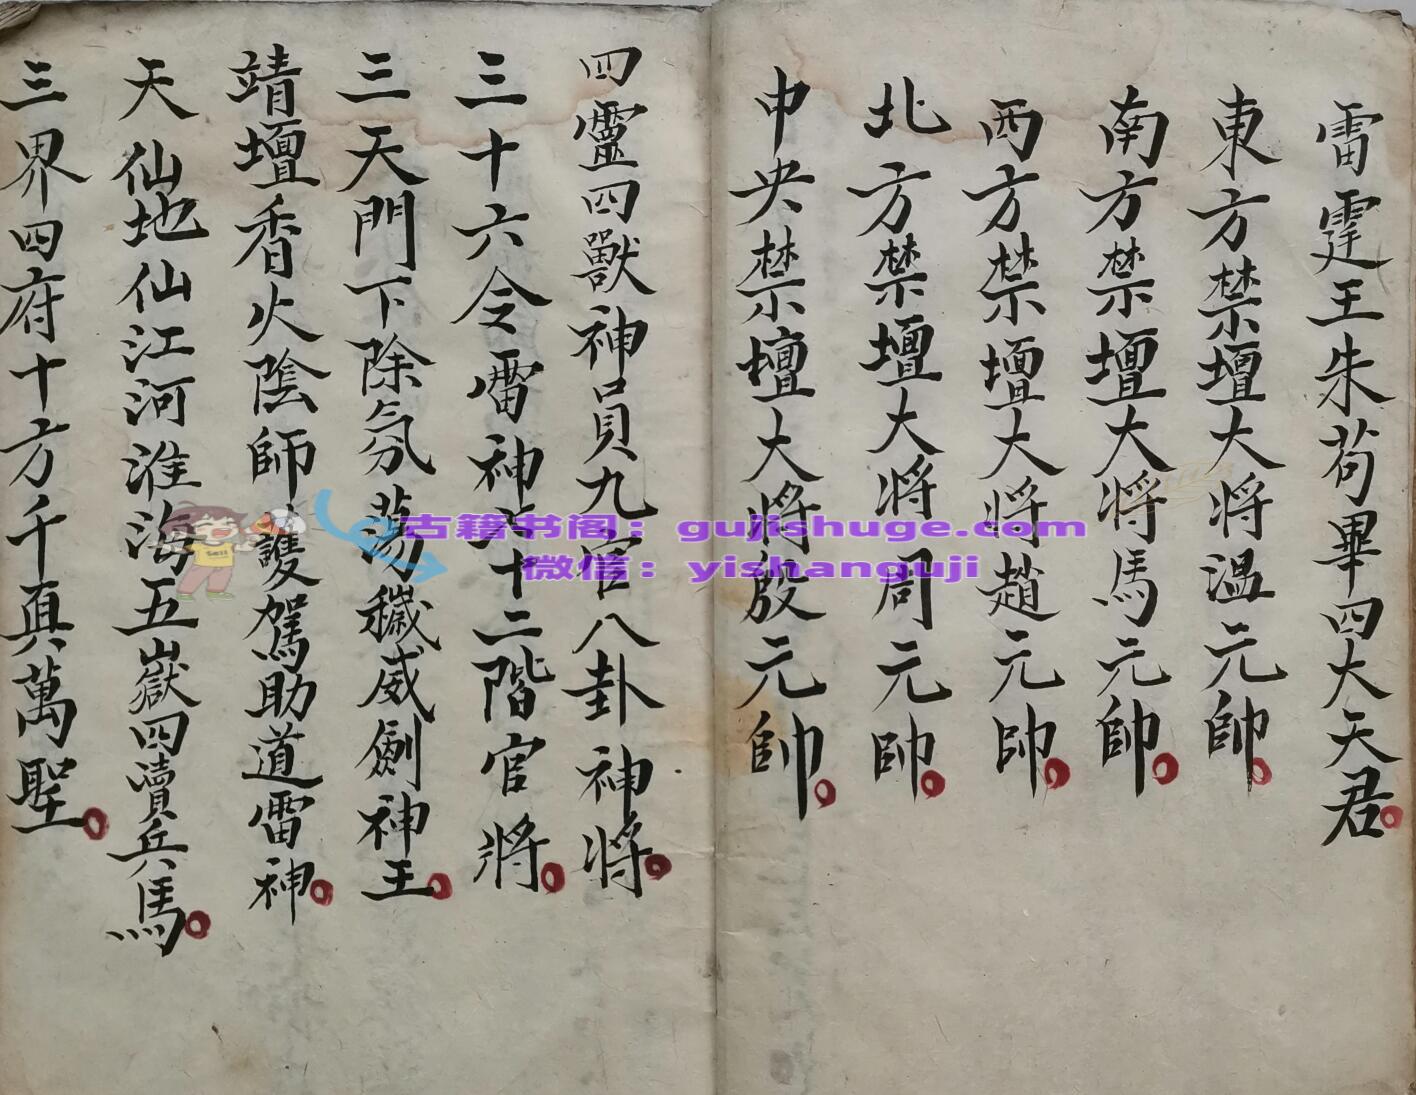 雷霆王朱苟畢四大天君
東方禁壇大将溫元帥
南方禁壇大将馬元帥
西方禁壇大将趙元帥
北方禁壇大将周元帥
中央禁壇大将殷元帥
四靈四獸神員九宮八卦神将
三十六令雷神七十二階官将
三天門下除氛蕩穢威劍神王
靖壇香火陰師護駕助道雷神
天仙地仙江河淮海五嶽四瀆兵馬
三界四府十方千真萬聖
古籍书阁：gujishuge.com
微信：yishanguji